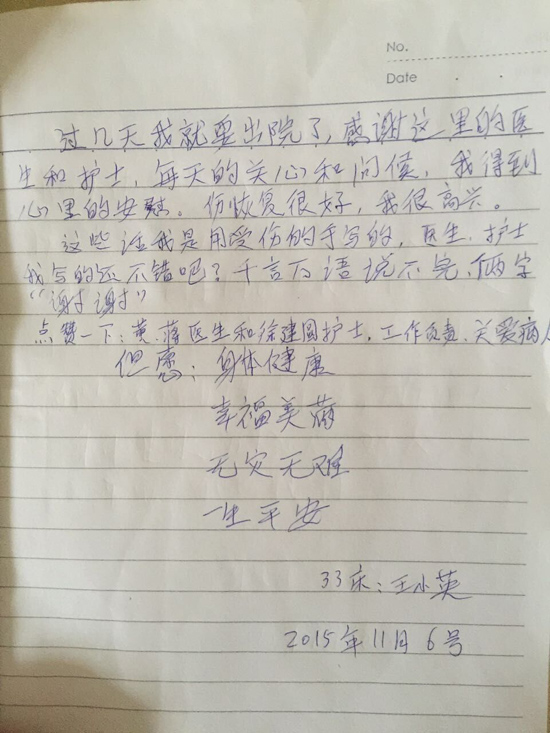 No.
Date
过几天我就要出院了，感谢这里的医
生和护士，每天的关心和问候，我得到
心里的安慰。伤恢复很好，我很高兴。
这些话我是用受伤的手写的，医生、护士
我写的还不错吧？千言万语说不完，俩字
“谢谢”
点赞一下：黄.蒋医生和徐建国护士，工作负责、关爱病人
但愿：身体健康
幸福美满
无灾无难
一生平安
33床：王小英
2015年11月6号